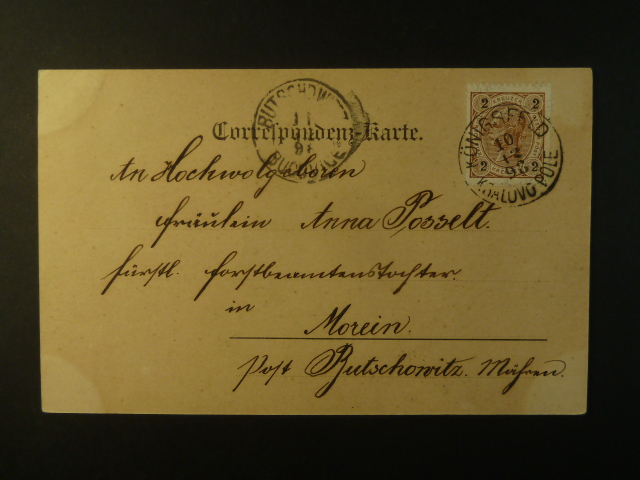 BUTSCHOWITZ
11
98
BUČOVICE
2 KREUZER 2
2 2
KÖNIGSFELD
10
12
98
KRÁLOVO POLE
Correspondenz-Karte.
An Hochwolgeboren
Fräulein Anna Posselt.
fürstl. Forstbeamtenstochter.
in
Morein.
Post Butschowitz. Mähren.